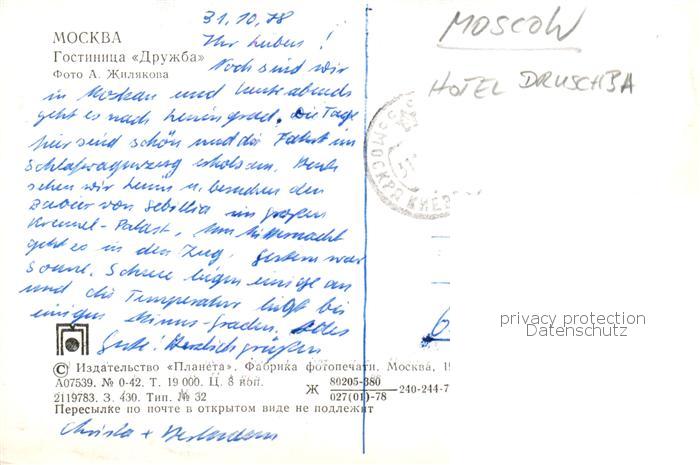 31.10.78
МОСКВА
Ihr Lieben!
Гостиница «Дружба»
Фото А. Жилякова
Noch sind wir
in Moskau und heute abends
geht es nach Leningrad. Die Tage
hier sind schön und die Fahrt im
Schlafwagenzug erholsam. Heute
sehen wir Lenin u. besuchen den
Barbier von Sebillia im großen
Kremel-Palast. Um Mitternacht
geht es in den Zug. Gestern war
Sonne. Schnee liegen einige cm
und die Temperatur liegt bis
einigen Minus-Graden. Alles
Gute! Herzlich grüßen
© Издательство «Планета». Фабрика фотопечати. Москва, 19
А07539. № 0-42. Т. 19 000. Ц. 8 коп.
2119783. З. 430. Тип. № 32
Ж 80205-380 240-244-7
027(01)-78
Пересылке по почте в открытом виде не подлежит
Christa +
MOSCOW
HOTEL DRUSCHBA
МОСКВА КИЕВ
privacy protection
Datenschutz